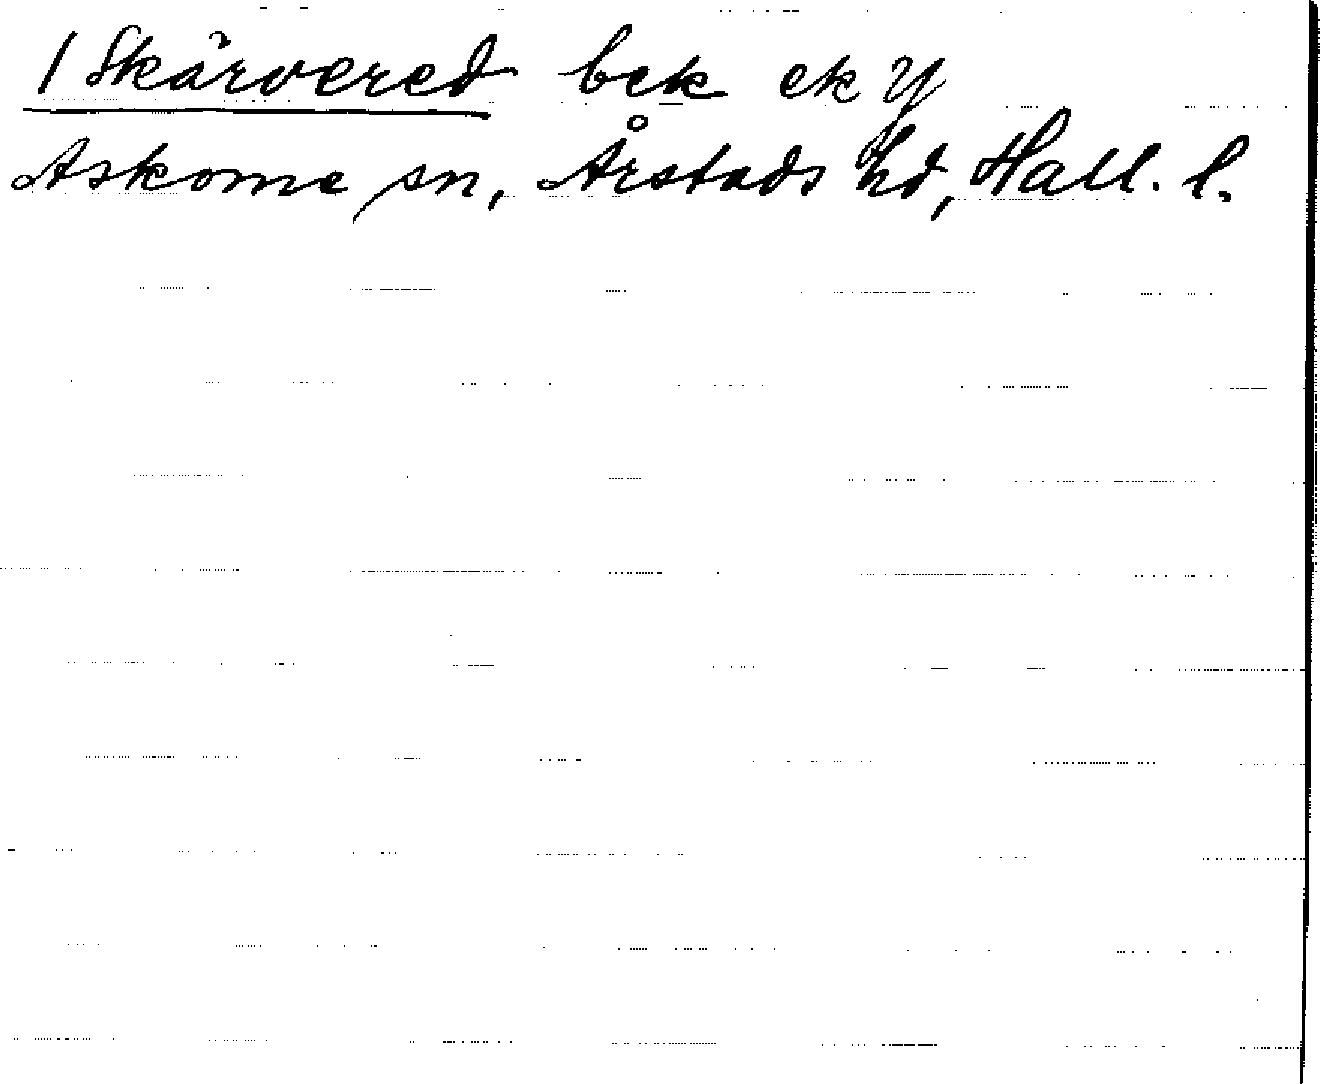 1 Skärvered bek ek Y
Askome sn, Årstads hd, Hall. l.